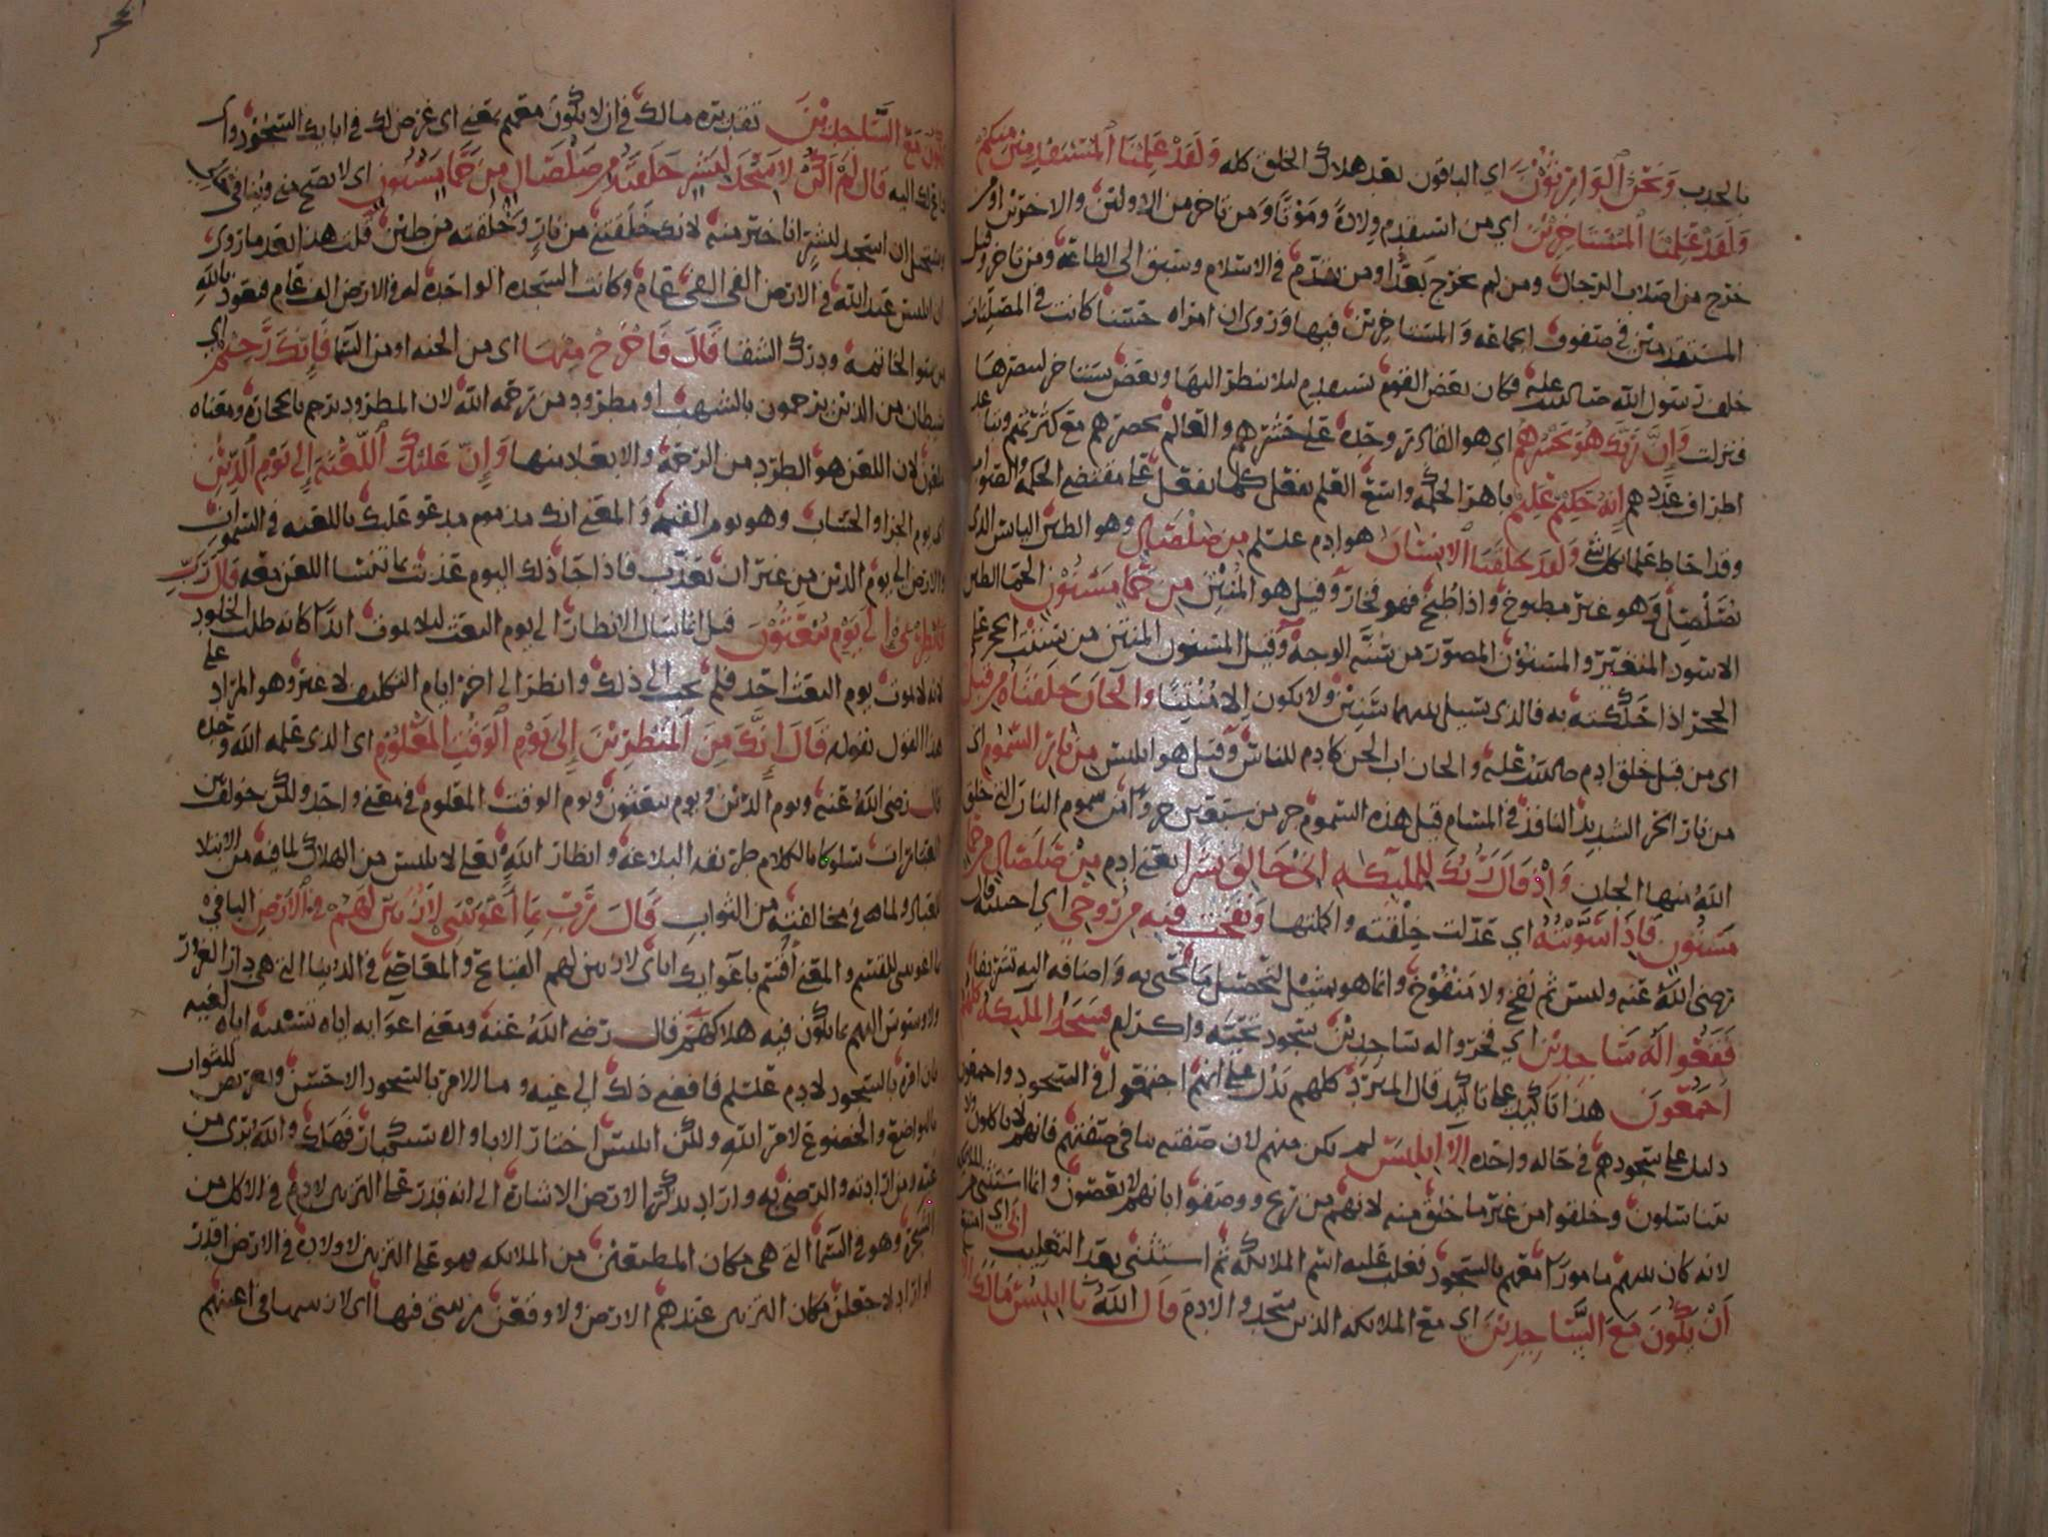 بالجدب وَنَحْنُ الْوَارِثُوْنَ اي الباقون بعد هلاك الخلق كله وَلَقَدْ عَلِمْنَا الْمُسْتَقْدِمِيْنَ مِنْكُمْ
وَلَقَدْ عَلِمْنَا الْمُسْتَاخِرِيْنَ اي من استقدم ولادة وموتا ومن تاخر من الاولين والاخرين اومن
خرج من اصلاب الرجال ومن لم يخرج بعد او من تقدم في الاسلام وسبق الى الطاعة ومن تاخر وقيل
المستقدمين في صفوف الجماعه والمستاخرين فيها وروى ان امراه حسنا كانت في المصليات
خلف رسول الله صلى الله عليه فكان بعض القوم يستقدم ليلا ينظر اليها وبعض يستاخر ليبصرها
فنزلت وَاِنَّ رَبَّكَ هُوَ يَحْشُرُهُمْ اي هو القادر وحده على حشرهم والعالم بحصرهم مع كثرتهم وتباعد
اطراف عددهم اِنَّهُ حَكِيْمٌ عَلِيْمٌ باهر الحكمه واسع العلم يفعل كلما يفعل على مقتضى الحكمه والصواب
وقد احاط علما بكل شي وَلَقَدْ خَلَقْنَا الْاِنْسَانَ هو ادم علسلم مِنْ صَلْصَالٍ وهو الطين اليابس الذي
يصلصل وهو غير مطبوخ واذا طُبخ فهو فخار وقيل هو المُنتِن مِنْ حَمَاٍ مَسْنُوْنٍ الحما الطين
الاسود المتغير والمسنون المصور من سنّه الوجه وقيل المسنون المنتن من سننت الحجر على
الحجر اذا حككته به فالذي يسيل بينهما سَنِيْن ولا يكون الا مُنْتِنا وَالْجَانَّ خَلَقْنَاهُ مِنْ قَبْلُ
اى من قبل خلق ادم صلى الله عليه والجان اب الجن كادم للناس وقيل هو ابليس مِنْ نَارِ السَّمُوْمِ اي
من نار الحر الشديد النافذ في المسام قيل هذه السموم جزو من سبعين جزوا من سموم النار التي خلق
الله منها الجان وَاِذْ قَالَ رَبُّكَ لِلْمَلٰئِكَةِ اِنِّيْ خَالِقٌ بَشَرًا يعنى ادم مِنْ صَلْصَالٍ مِنْ حَمَاٍ
مَسْنُوْنٍ فَاِذَا سَوَّيْتُهُ اي عدّلت خِلْقته واكملتها وَنَفَخْتُ فِيْهِ مِنْ رُوْحِي اي احييته قال
رضى الله عنه وليس ثم نفخ ولا منفوخ وانما هو تمثيل لتحصيل ما يحيى به واضافه اليه تشريفا
فَقَعُوْا لَهُ سَاجِدِيْنَ اي فخروا له ساجدين سجود تحيه واكرام فَسَجَدَ الْمَلٰئِكَةُ كُلُّهُمْ
اَجْمَعُوْنَ هذا تاكيد على تاكيد قال المبرد كلهم يدل على انهم اجتمعوا في السجود واجمعون
دليل على سجودهم في حاله واحده اِلَّا اِبْلِيْسَ لم يكن منهم لان صفته تنافي صفتهم فانهم لا ياكلون ولا
يتناسلون وخلقوا من غير ما خلق منه لانهم من ريح ووصفوا بانهم لا يعصون وانما استثني من الملائكه
لانه كان بينهم مامورا معهم بالسجود فغلب عليه اسم الملائكه ثم استثنى بعد التغليب اَبٰى اي امتنع
اَنْ يَكُوْنَ مَعَ السَّاجِدِيْنَ اي مع الملائكه الذين سجدوا لادم قَالَ اللهُ يَا اِبْلِيْسُ مَالَكَ اَلَّا
تَكُوْنَ مَعَ السَّاجِدِيْنَ تقديره مالك في ان لا تكون معهم يعني اى غرض لك في ابايك السجود وا
قَالَ لَمْ اَكُنْ لِاَسْجُدَ لِبَشَرٍ خَلَقْتَهُ مِنْ صَلْصَالٍ مِنْ حَمَاٍ مَسْنُوْنٍ اى لا يصح مني وينافي
ان اسجد لبشر انا خير منه لانك خلقتني من نار وخلقته من طين قلت هذا بعد ما روى
ان ابليس عبد الله في الارض الفي الفي عام وكانت السجده الواحده له في الارض الف عام فنعوذ بالله
من سو الخاتمه ودرك الشقا قَالَ فَاخْرُجْ مِنْهَا اى من الجنه او من السما فَاِنَّكَ رَجِيْمٌ اى
شيطان من الذين يرجمون بالشهب او مطرود من رحمه الله لان المطرود يرجم بالحجاره ومعناه
ملعون لان اللعن هو الطرد من الرحمه والابعاد منها وَاِنَّ عَلَيْكَ اللَّعْنَةَ اِلٰى يَوْمِ الدِّيْنِ
اى يوم الجزا والحساب وهو يوم القيمه والمعنى انك مذموم مدعو عليك باللعنه في السموات
والارض الى يوم الدين من غير ان تعذب فاذا جا ذلك اليوم عذبت بما تنسا اللعن معه قَالَ رَبِّ
فَاَنْظِرْنِيْ اِلٰى يَوْمِ يُبْعَثُوْنَ قيل انما سال الانظار الى يوم البعث ليلا يموت ابدا كانه طلب الخلود
لانه لا يموت يوم البعث احد فلم يجب الى ذلك وانظر الى اخر ايام التكليف لا غير وهو المراد على
هذا القول بقوله قَالَ اِنَّكَ مِنَ الْمُنْظَرِيْنَ اِلٰى يَوْمِ الْوَقْتِ الْمَعْلُوْمِ اى الذى علمه الله وحده
قال رضى الله عنه ويوم الدين ويوم يبعثون ويوم الوقت المعلوم في معنى واحد ولكن خولف بين
العبارات سلوكا بالكلام طريقه البلاغه وانظار الله تعالى لابليس من الهلاك لما فيه من الابتلا
للعباد ولما في مخالفته من الثواب قَالَ رَبِّ بِمَا اَغْوَيْتَنِيْ لَاُزَيِّنَنَّ لَهُمْ فِي الْاَرْضِ البا في
بما اغويتنى للقسم والمعنى اقسم باغوايك اياى لازينن لهم القبائح والمعاصى في الدنيا التي هي دار الغرور
ولاوسوس اليهم بما يكون فيه هلاكهم قال رضى الله عنه ومعنى اغوايه اياه تسببه اياه لغيه
بان امره بالسجود لادم علسلم فافضى ذلك الى غيه وما الامر بالسجود الا حسن وتعريض للثواب
بالتواضع والخضوع لامر الله ولكن ابليس اختار الابا والاستكبار فهلك والله برى من
غيه ومن ارادته والرضى به واراد بذكر الارض الاشارة الى انه قدر على التزيين لادم في الاكل من
الشجره وهو في السما التي هي مكان المطيعين من الملائكه فهو على التزيين لاولاده في الارض اقدر
او اراد لاجعلن مكان التزيين عندهم الارض ولاوقعن تزييني فيها اى لازينها في اعينهم